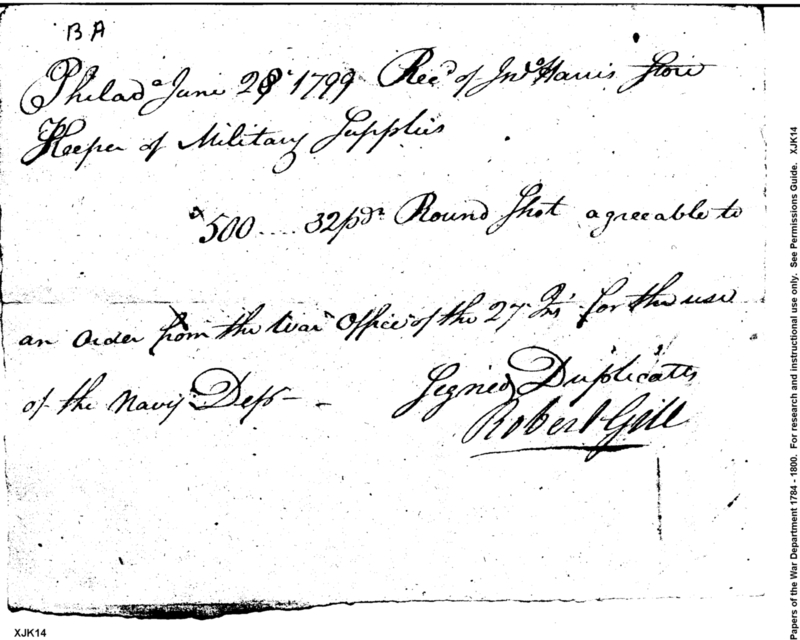 B A
Philada June 28 1799 Recd of Jno Harris Store
Keeper of Military Supplies
500 .... 32pdr Round Shot agreeable to
an order from the War Office of the 27 Inst for the use
of the Navy Dept
Signed Duplicates
Robert Gill
XJK14
Papers of the War Department 1784 - 1800. For research and instructional use only. See Permissions Guide. XJK14